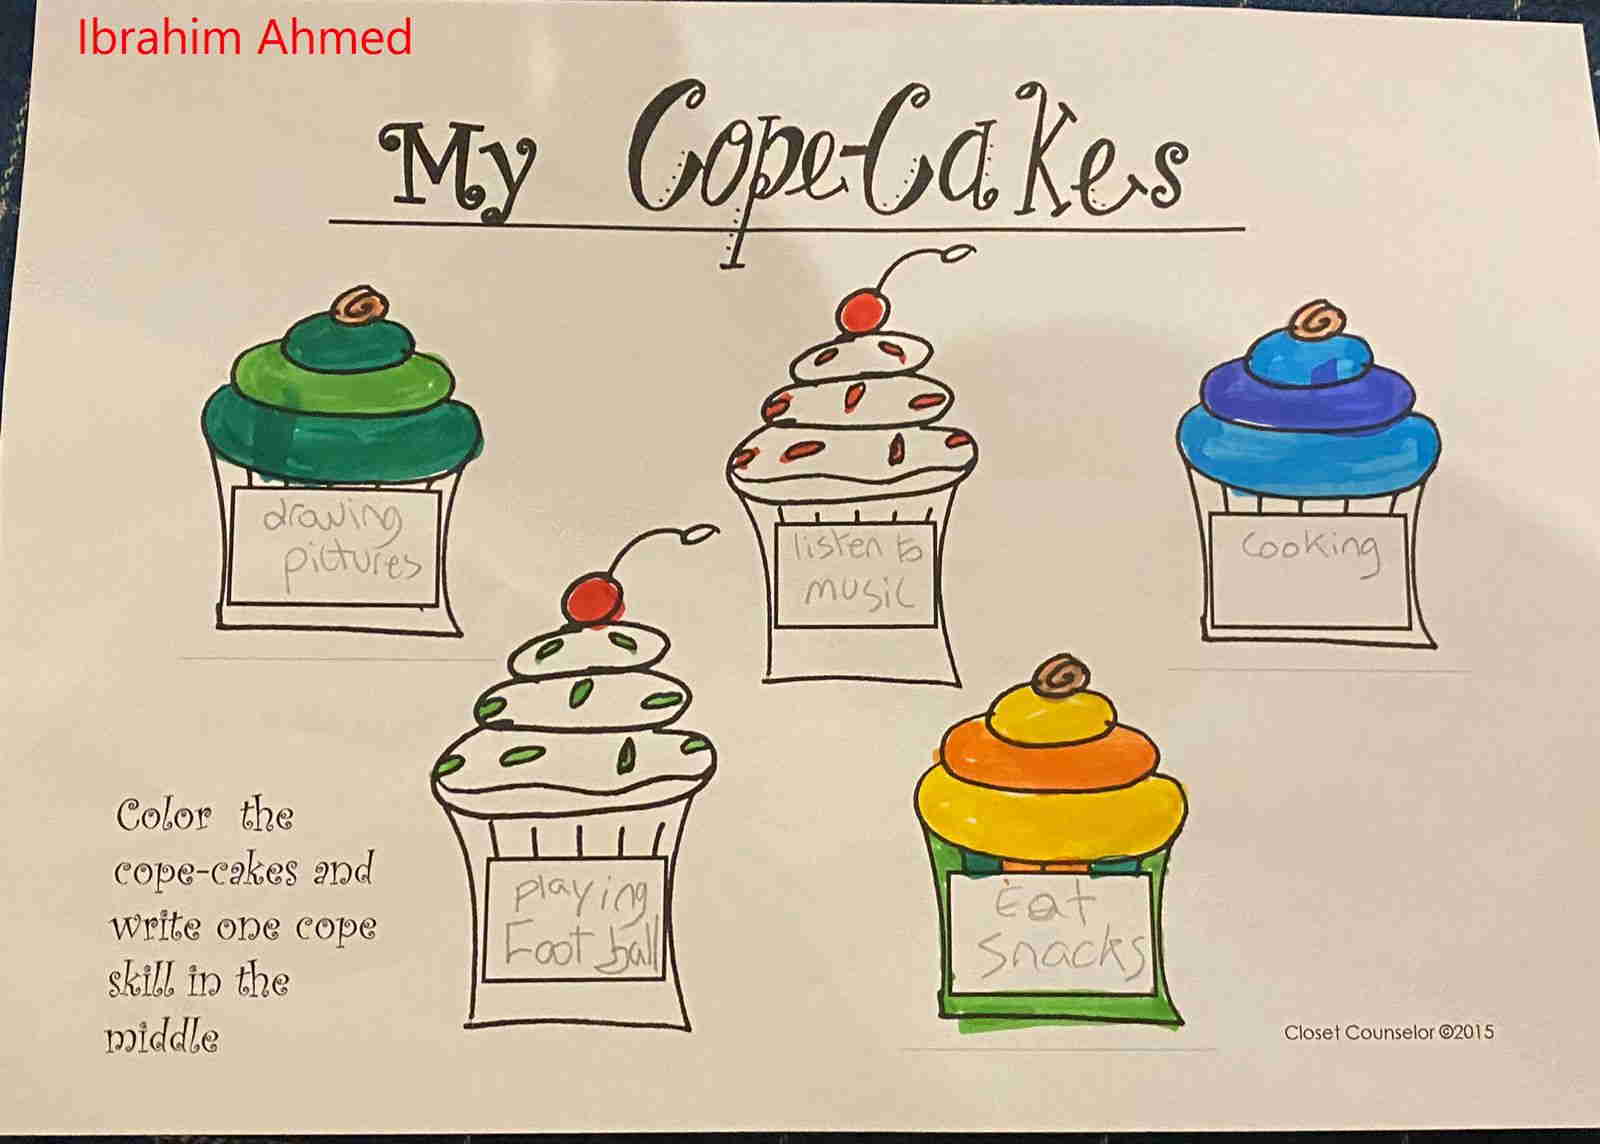 Ibrahim Ahmed
My Cope-Cakes
drawing
pictures
listen to
music
cooking
playing
Foot ball
Eat
snacks
Color the
cope-cakes and
write one cope
skill in the
middle
Closet Counselor ©2015